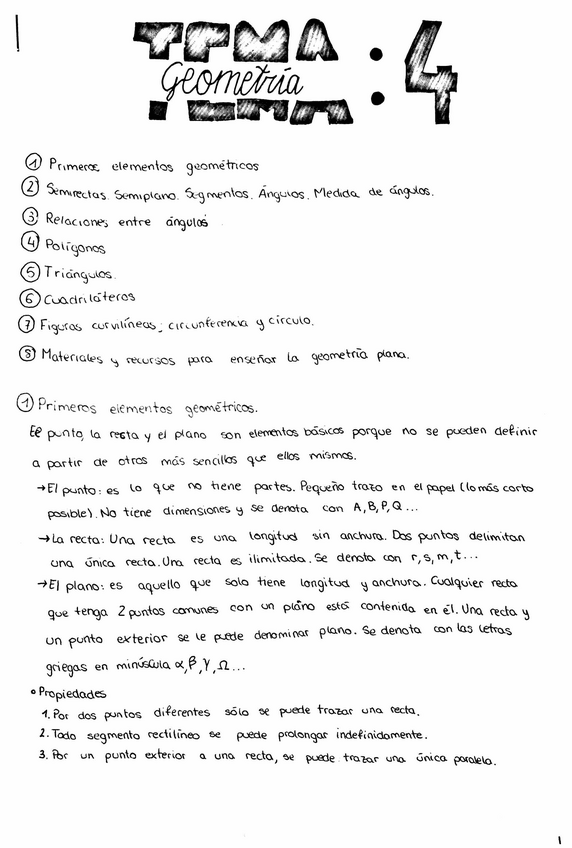 TEMA : 4
Geometría
① Primeros elementos geométricos
② Semirrectas. Semiplano. Segmentos. Ángulos. Medida de ángulos.
③ Relaciones entre ángulos
④ Polígonos
⑤ Triángulos.
⑥ Cuadriláteros
⑦ Figuras curvilíneas; circunferencia y círculo.
⑧ Materiales y recursos para enseñar la geometría plana.
① Primeros elementos geométricos.
El punto, la recta y el plano son elementos básicos porque no se pueden definir
a partir de otros más sencillos que ellos mismos.
→ El punto: es lo que no tiene partes. Pequeño trazo en el papel (lo más corto
posible). No tiene dimensiones y se denota con A, B, P, Q...
→ La recta: Una recta es una longitud sin anchura. Dos puntos delimitan
una única recta. Una recta es ilimitada. Se denota con r, s, m, t...
→ El plano: es aquello que solo tiene longitud y anchura. Cualquier recta
que tenga 2 puntos comunes con un plano está contenida en él. Una recta y
un punto exterior se le puede denominar plano. Se denota con las letras
griegas en minúscula α, β, γ, Ω...
• Propiedades
1. Por dos puntos diferentes sólo se puede trazar una recta.
2. Todo segmento rectilíneo se puede prolongar indefinidamente.
3. Por un punto exterior a una recta, se puede trazar una única paralela.
1